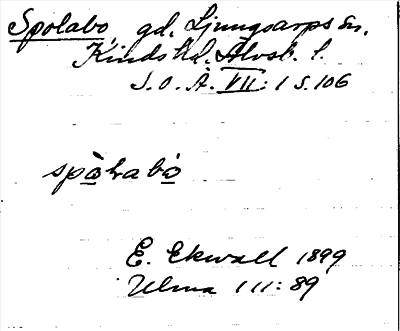 Spolabo, gd. Ljungsarps sn.
Kinds hd. Älvsb. l.
S. O. Ä. VII: 1 s. 106
spò̲habò̲
E. Ekwall 1899
Ulma 111: 89